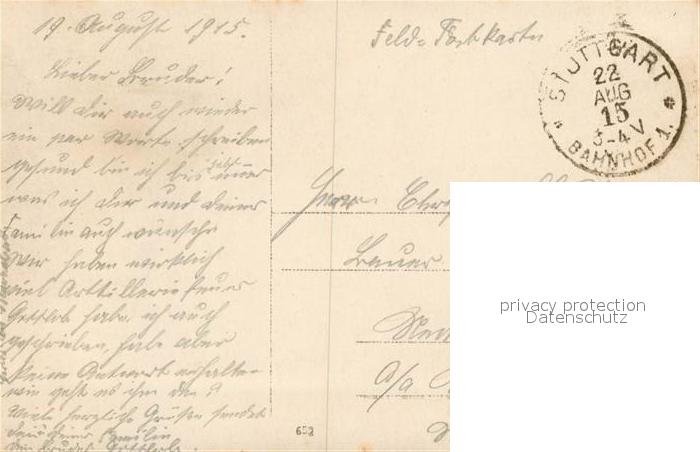 19. August 1915.
Lieber Bruder!
Will dir auch wieder
ein par Worte schreiben
gesund bin ich bis jetzt immer
was ich dir und deiner
Familie auch wünsche
Wir haben wirklich
viel Arttillerie feuer
Gottlob habe ich auch
geschrieben, habe aber
keine Antwort erhalten
wie geht es ihm den?
Viele herzliche Grüße sendet
dein Bruder
Feld-Postkarte
STUTTGART
22
AUG
15
3-4 V
BAHNHOF 1.
Herrn
Bauer
a/a
652
privacy protection
Datenschutz